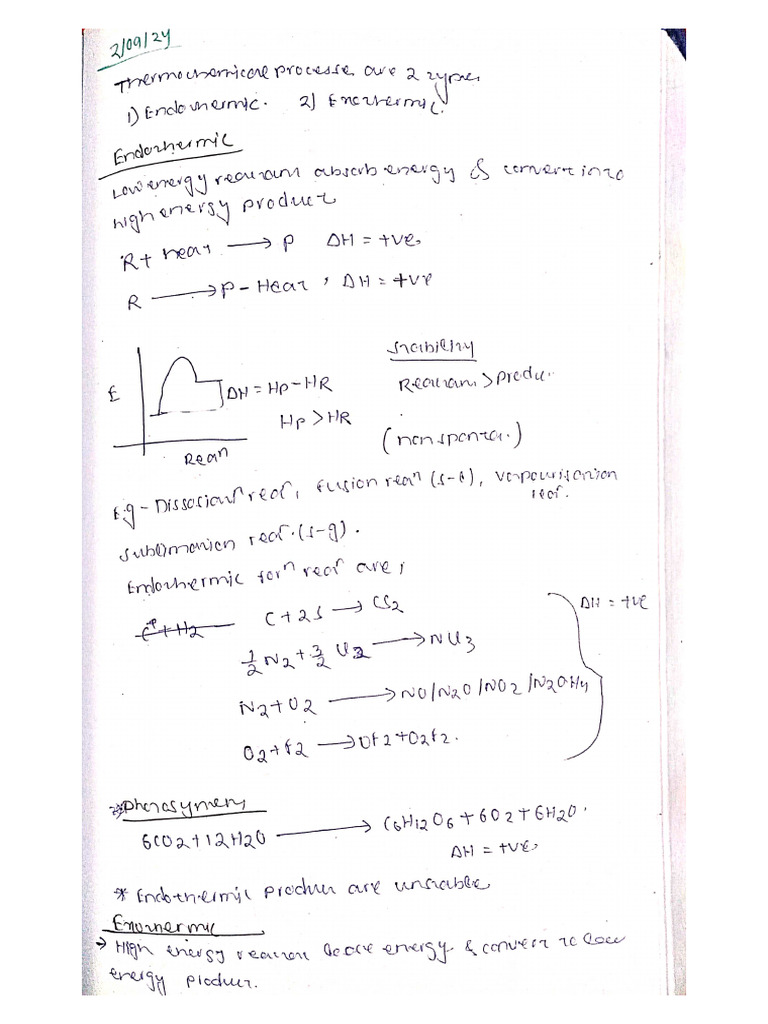 2/09/24
Thermochemical processes are 2 types
1) Endothermic. 2) Exothermic.
Endothermic
Low energy reactant absorb energy & convert into
high energy product
R + heat → P ΔH = +ve.
R → P - Heat, ΔH = +ve
Stability
E
ΔH = HP - HR
Reactant > Produ.
HP > HR
(nonsponta.)
Rean
E.g - Dissociatn rean, fusion rean (s-l), vapourisation
rean.
sublimation rean. (s-g).
Endothermic forn rean are,
C + 2S → CS2
ΔH = +ve
C + H2
1/2 N2 + 3/2 Cl2 → NCl3
N2 + O2 → NO/N2O/NO2/N2O4
O2 + F2 → OF2 + O2F2.
6CO2 + 12H2O → C6H12O6 + 6O2 + 6H2O.
ΔH = +ve.
* Endothermic product are unstable
Exothermic
→ High energy reactant loose energy & convert to low
energy product.